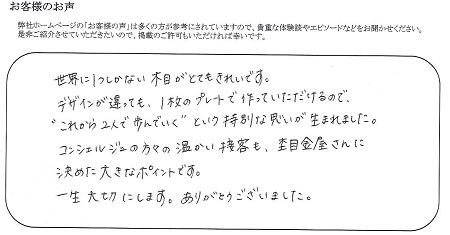 お客様のお声
弊社ホームページの「お客様の声」は多くの方が参考にされていますので、貴重な体験談やエピソードなどをお聞かせください。
是非ご紹介させていただきたいので、掲載のご許可もいただければ幸いです。
世界に1つしかない木目がとてもきれいです。
デザインが違っても、1枚のプレートで作っていただけるので、
“これから2人で歩んでいく”という特別な思いが生まれました。
コンシェルジュの方々の温かい接客も、杢目金屋さんに
決めた大きなポイントです。
一生大切にします。ありがとうございました。